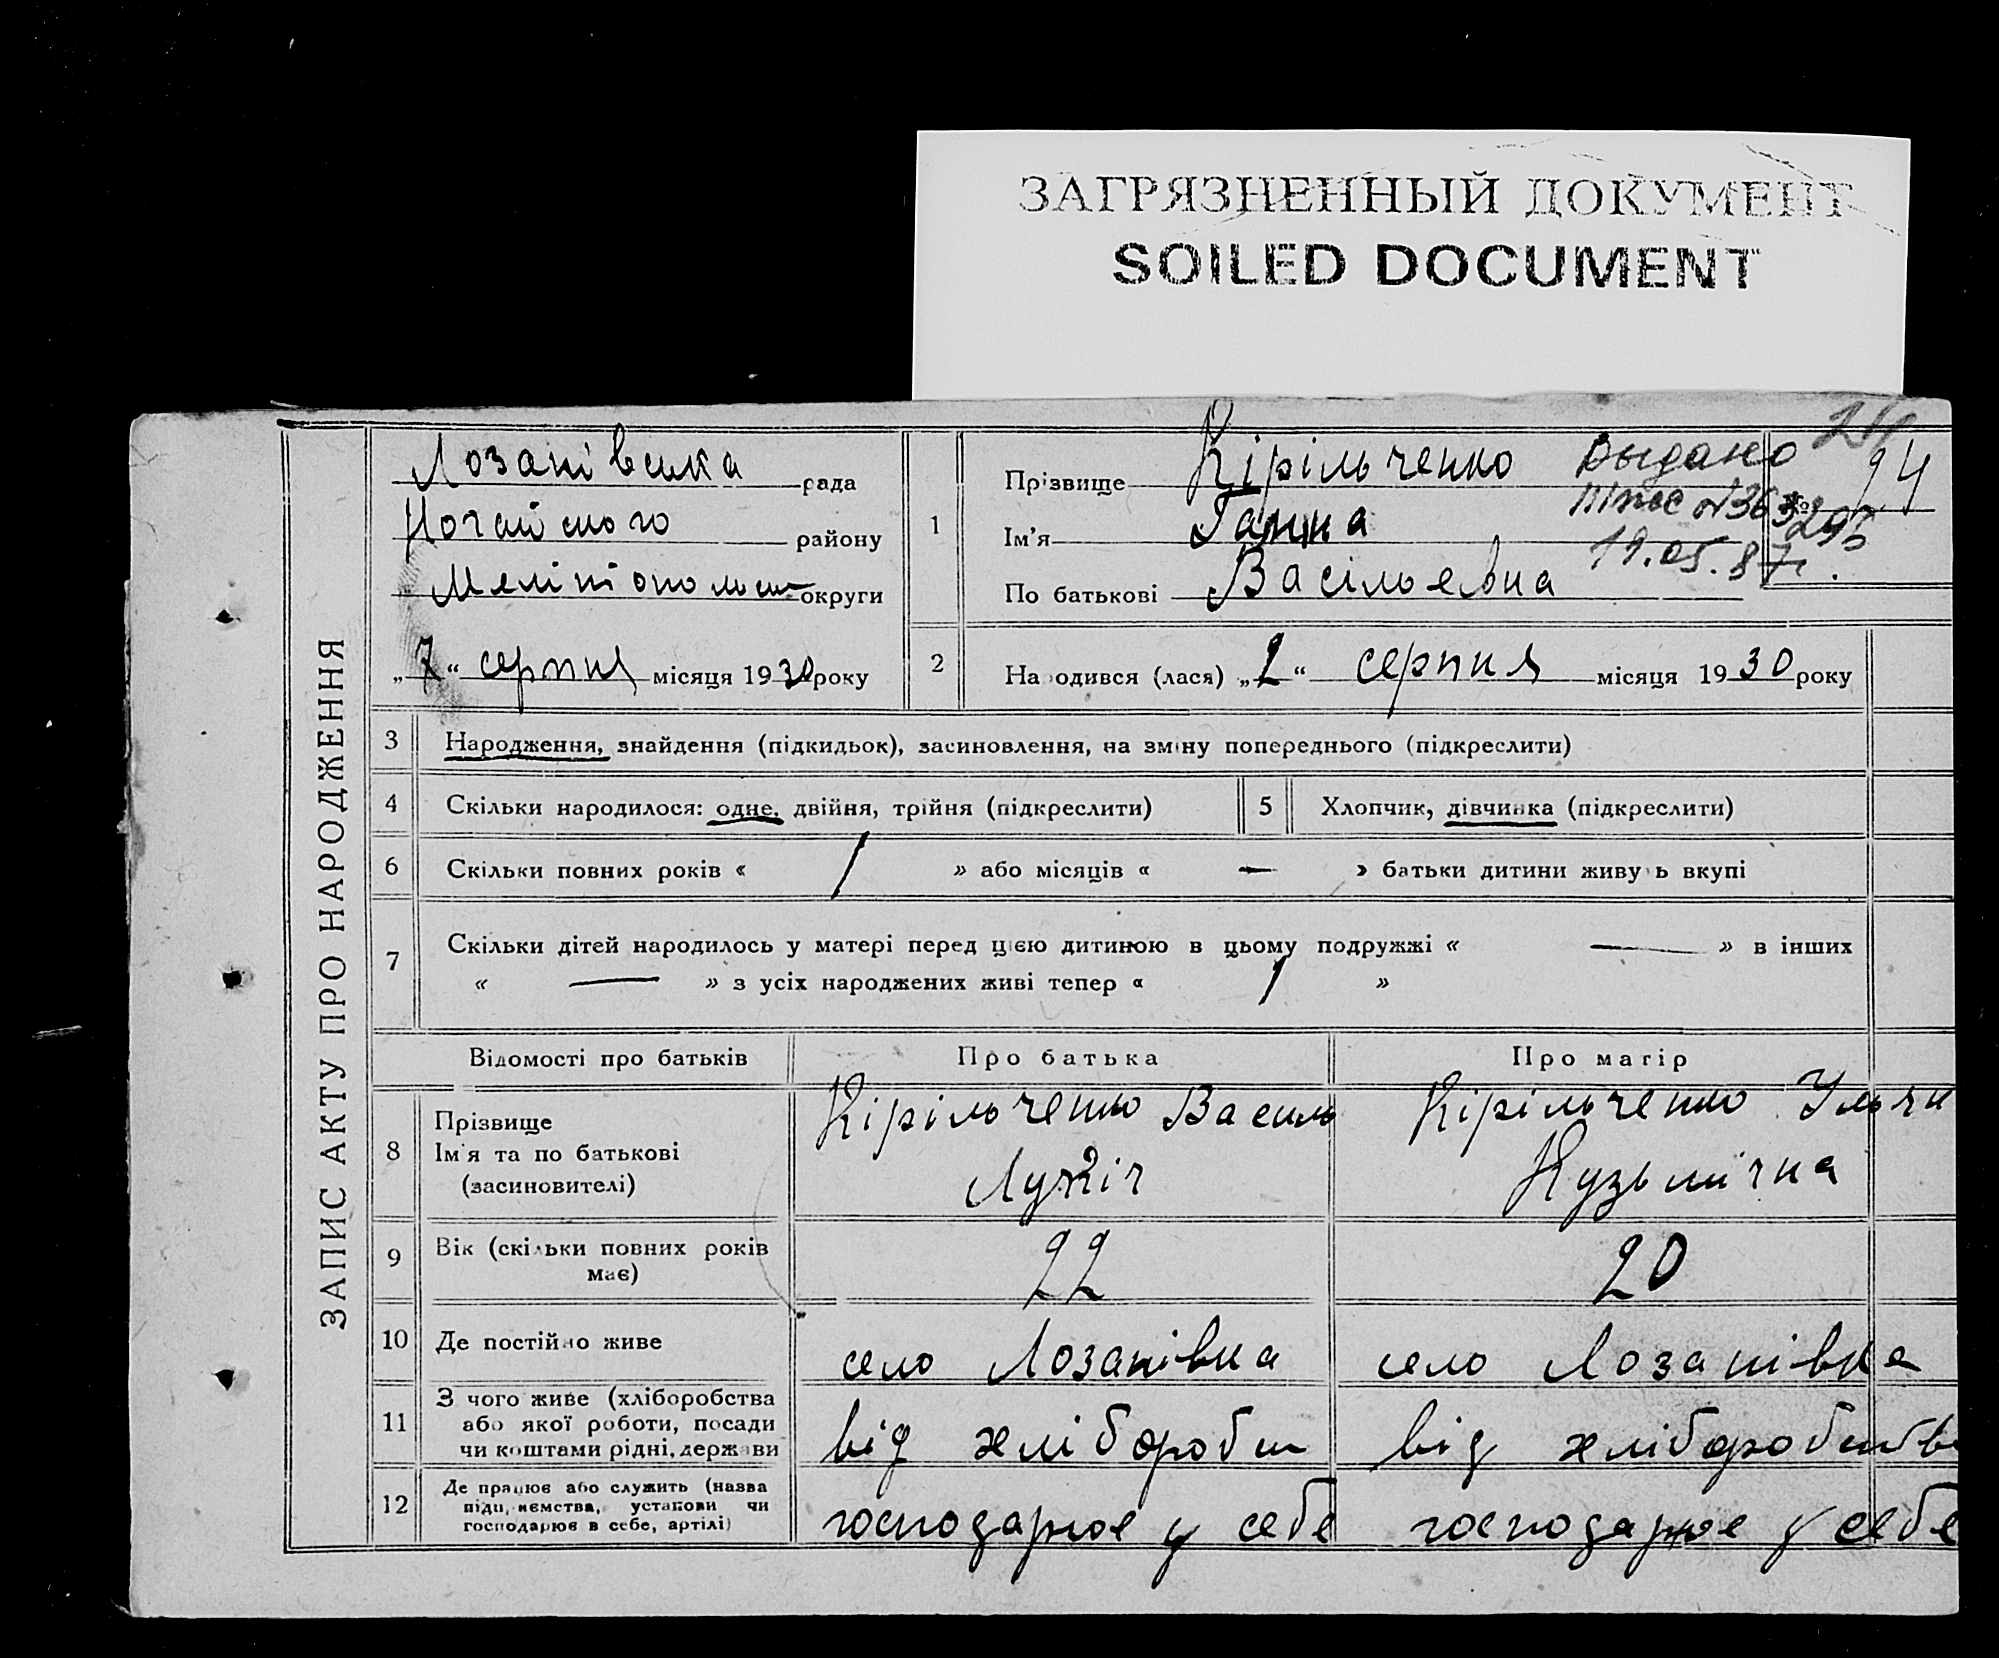 ЗАГРЯЗНЕННЫЙ ДОКУМЕНТ
SOILED DOCUMENT
ЗАПИС АКТУ ПРО НАРОДЖЕННЯ
Лозанівська рада
Ногайського району
округи
„7“ серпня місяця 1930 року
1
Прізвище Кірільченко
Ім'я Ганна
По батькові Васільевна
94
Выдано
19.05.87г.
2
Народився (лася) „2“ серпня місяця 1930 року
3 Народження, знайдення (підкидьок), засиновлення, на зміну попереднього (підкреслити)
4 Скільки народилося: одне, двійня, трійня (підкреслити) 5 Хлопчик, дівчинка (підкреслити)
6 Скільки повних років « 1 » або місяців « — » батьки дитини живуть вкупі
7 Скільки дітей народилось у матері перед цією дитиною в цьому подружжі « — » в інших
« — » з усіх народжених живі тепер « 1 »
Відомості про батьків Про батька Про матір
8 Прізвище
Ім'я та по батькові
(засиновителі)
Кірільченко Василь
Кірільченко
Кузьмічна
9 Вік (скільки повних років
має)
22 20
10 Де постійно живе село Лозанівка село Лозанівка
11 З чого живе (хліборобства
або якої роботи, посади
чи коштами рідні, держави
від хліборобст від хліборобства
12 Де працює або служить (назва
підприємства, установи чи
господарює в себе, артілі)
господарює у себе господарює у себе